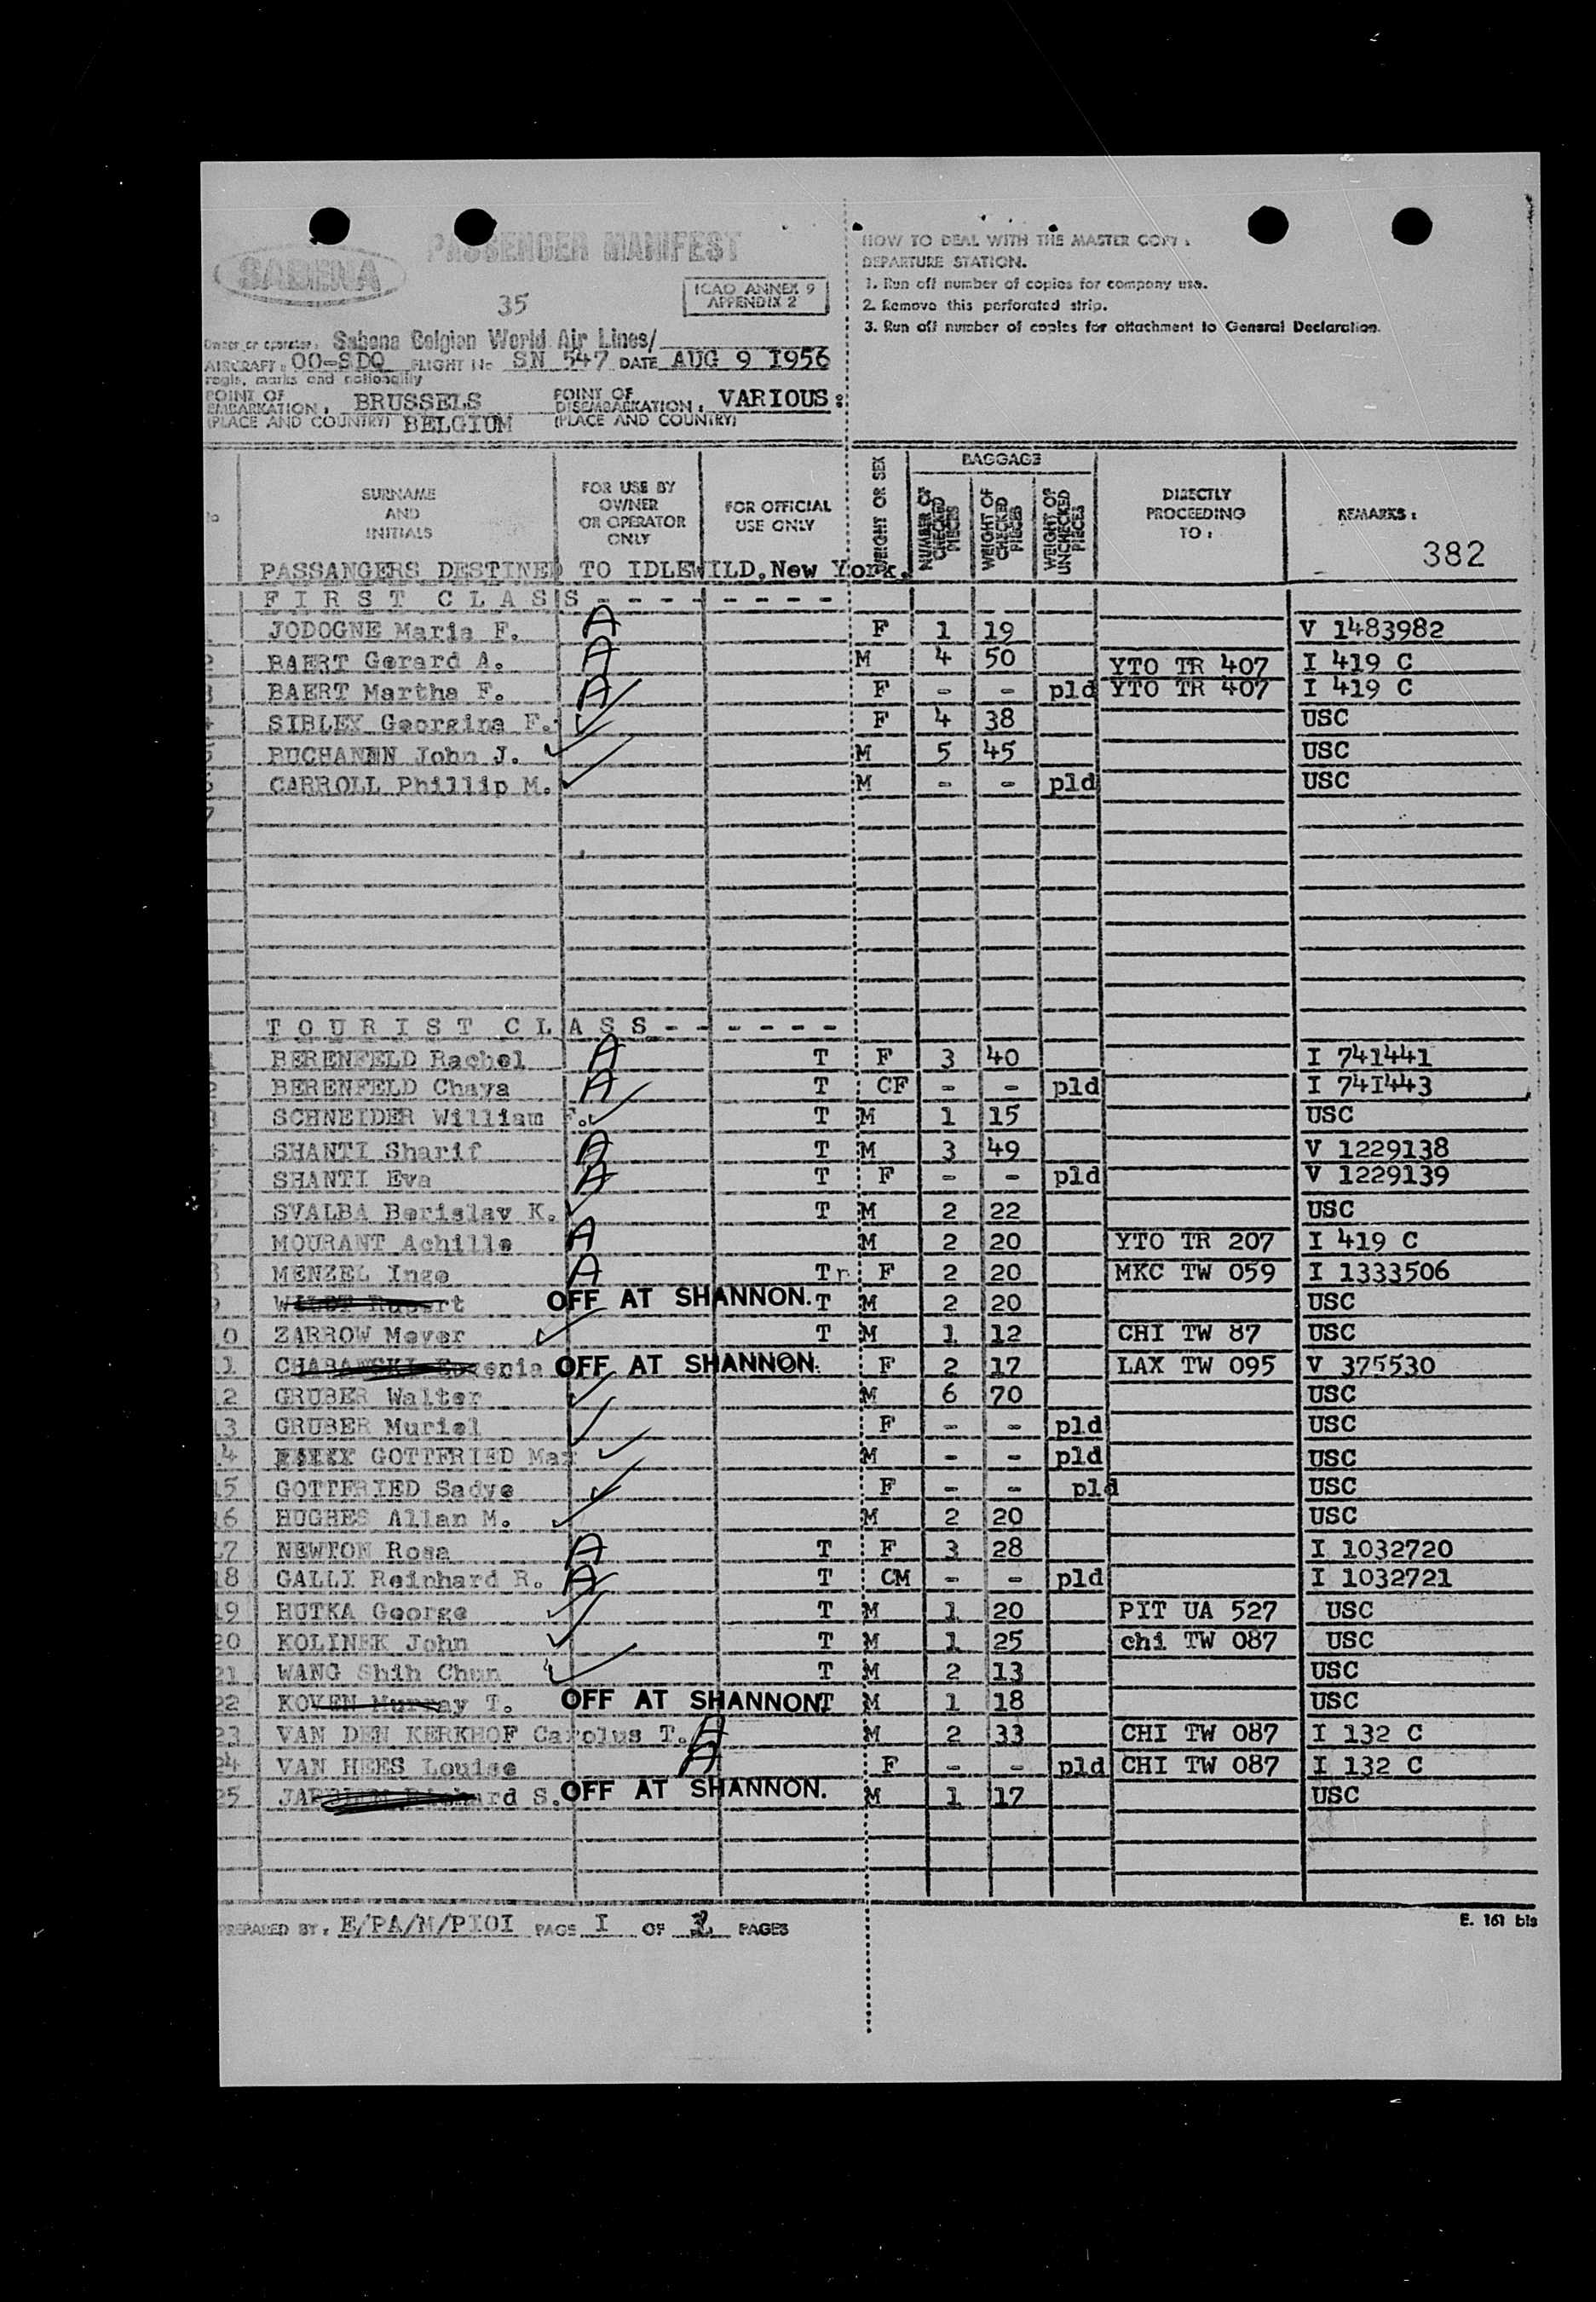 SABENA
PASSENGER MANIFEST
35
ICAO ANNEX 9
APPENDIX 2
Owner or operator: Sabena Belgian World Air Lines/
AIRCRAFT: OO-SDQ FLIGHT No SN 547 DATE AUG 9 1956
regis. marks and nationality
POINT OF EMBARKATION: BRUSSELS
(PLACE AND COUNTRY) BELGIUM
POINT OF DISEMBARKATION: VARIOUS:
(PLACE AND COUNTRY)
HOW TO DEAL WITH THE MASTER COPY:
DEPARTURE STATION.
1. Run off number of copies for company use.
2. Remove this perforated strip.
3. Run off number of copies for attachment to General Declaration.
SURNAME AND INITIALS
FOR USE BY OWNER OR OPERATOR ONLY
FOR OFFICIAL USE ONLY
WEIGHT OR SEX
BAGGAGE
NUMBER OF CHECKED PIECES
WEIGHT OF CHECKED PIECES
WEIGHT OF UNCHECKED PIECES
DIRECTLY PROCEEDING TO:
REMARKS:
382
PASSANGERS DESTINED TO IDLEWILD.New York.
F I R S T C L A S S - - - - - - - - -
JODOGNE Maria F. A F 1 19 V 1483982
2 BAERT Gerard A. A M 4 50 YTO TR 407 I 419 C
3 BAERT Martha F. A F - - pld YTO TR 407 I 419 C
4 SIBLEY Georgina F. F 4 38 USC
5 BUCHANEN John J. M 5 45 USC
6 CARROLL Phillip M. M - - pld USC
7
T O U R I S T C L A S S - - - - - - -
1 BERENFELD Rachel A T F 3 40 I 741441
2 BERENFELD Chaya A T CF - - pld I 741443
3 SCHNEIDER William F. T M 1 15 USC
4 SHANTI Sharif A T M 3 49 V 1229138
5 SHANTI Eva A T F - - pld V 1229139
6 SVALBA Berislav K. T M 2 22 USC
7 MOURANT Achille A M 2 20 YTO TR 207 I 419 C
8 MENZEL Inge A Tr F 2 20 MKC TW 059 I 1333506
9 OFF AT SHANNON. T M 2 20 USC
10 ZARROW Meyer T M 1 12 CHI TW 87 USC
11 OFF AT SHANNON. F 2 17 LAX TW 095 V 375530
12 GRUBER Walter M 6 70 USC
13 GRUBER Muriel F - - pld USC
14 GOTTFRIED Max M - - pld USC
15 GOTTFRIED Sadye F - - pld USC
16 HUGHES Allan M. M 2 20 USC
17 NEWTON Rosa A T F 3 28 I 1032720
18 GALLI Reinhard R. A T CM - - pld I 1032721
19 HUTKA George T M 1 20 PIT UA 527 USC
20 KOLINEK John T M 1 25 chi TW 087 USC
21 WANG Shih Chun T M 2 13 USC
22 KOVEN Murray T. OFF AT SHANNON T M 1 18 USC
23 VAN DEN KERKHOF Carolus T. A M 2 33 CHI TW 087 I 132 C
24 VAN HEES Louise A F - - pld CHI TW 087 I 132 C
25 S. OFF AT SHANNON. M 1 17 USC
PREPARED BY: E/PA/M/PIOI PAGE I OF PAGES
E. 161 bis